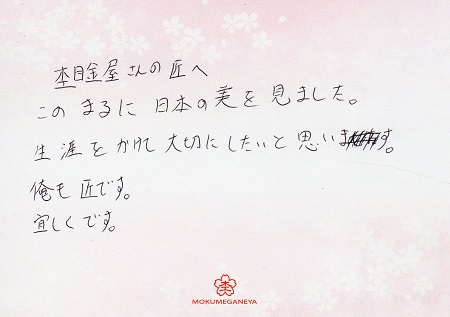 杢目金屋さんの匠へ
このまるに日本の美を見ました。
生涯をかけて大切にしたいと思います。
俺も匠です。
宜しくです。
MOKUMEGANEYA